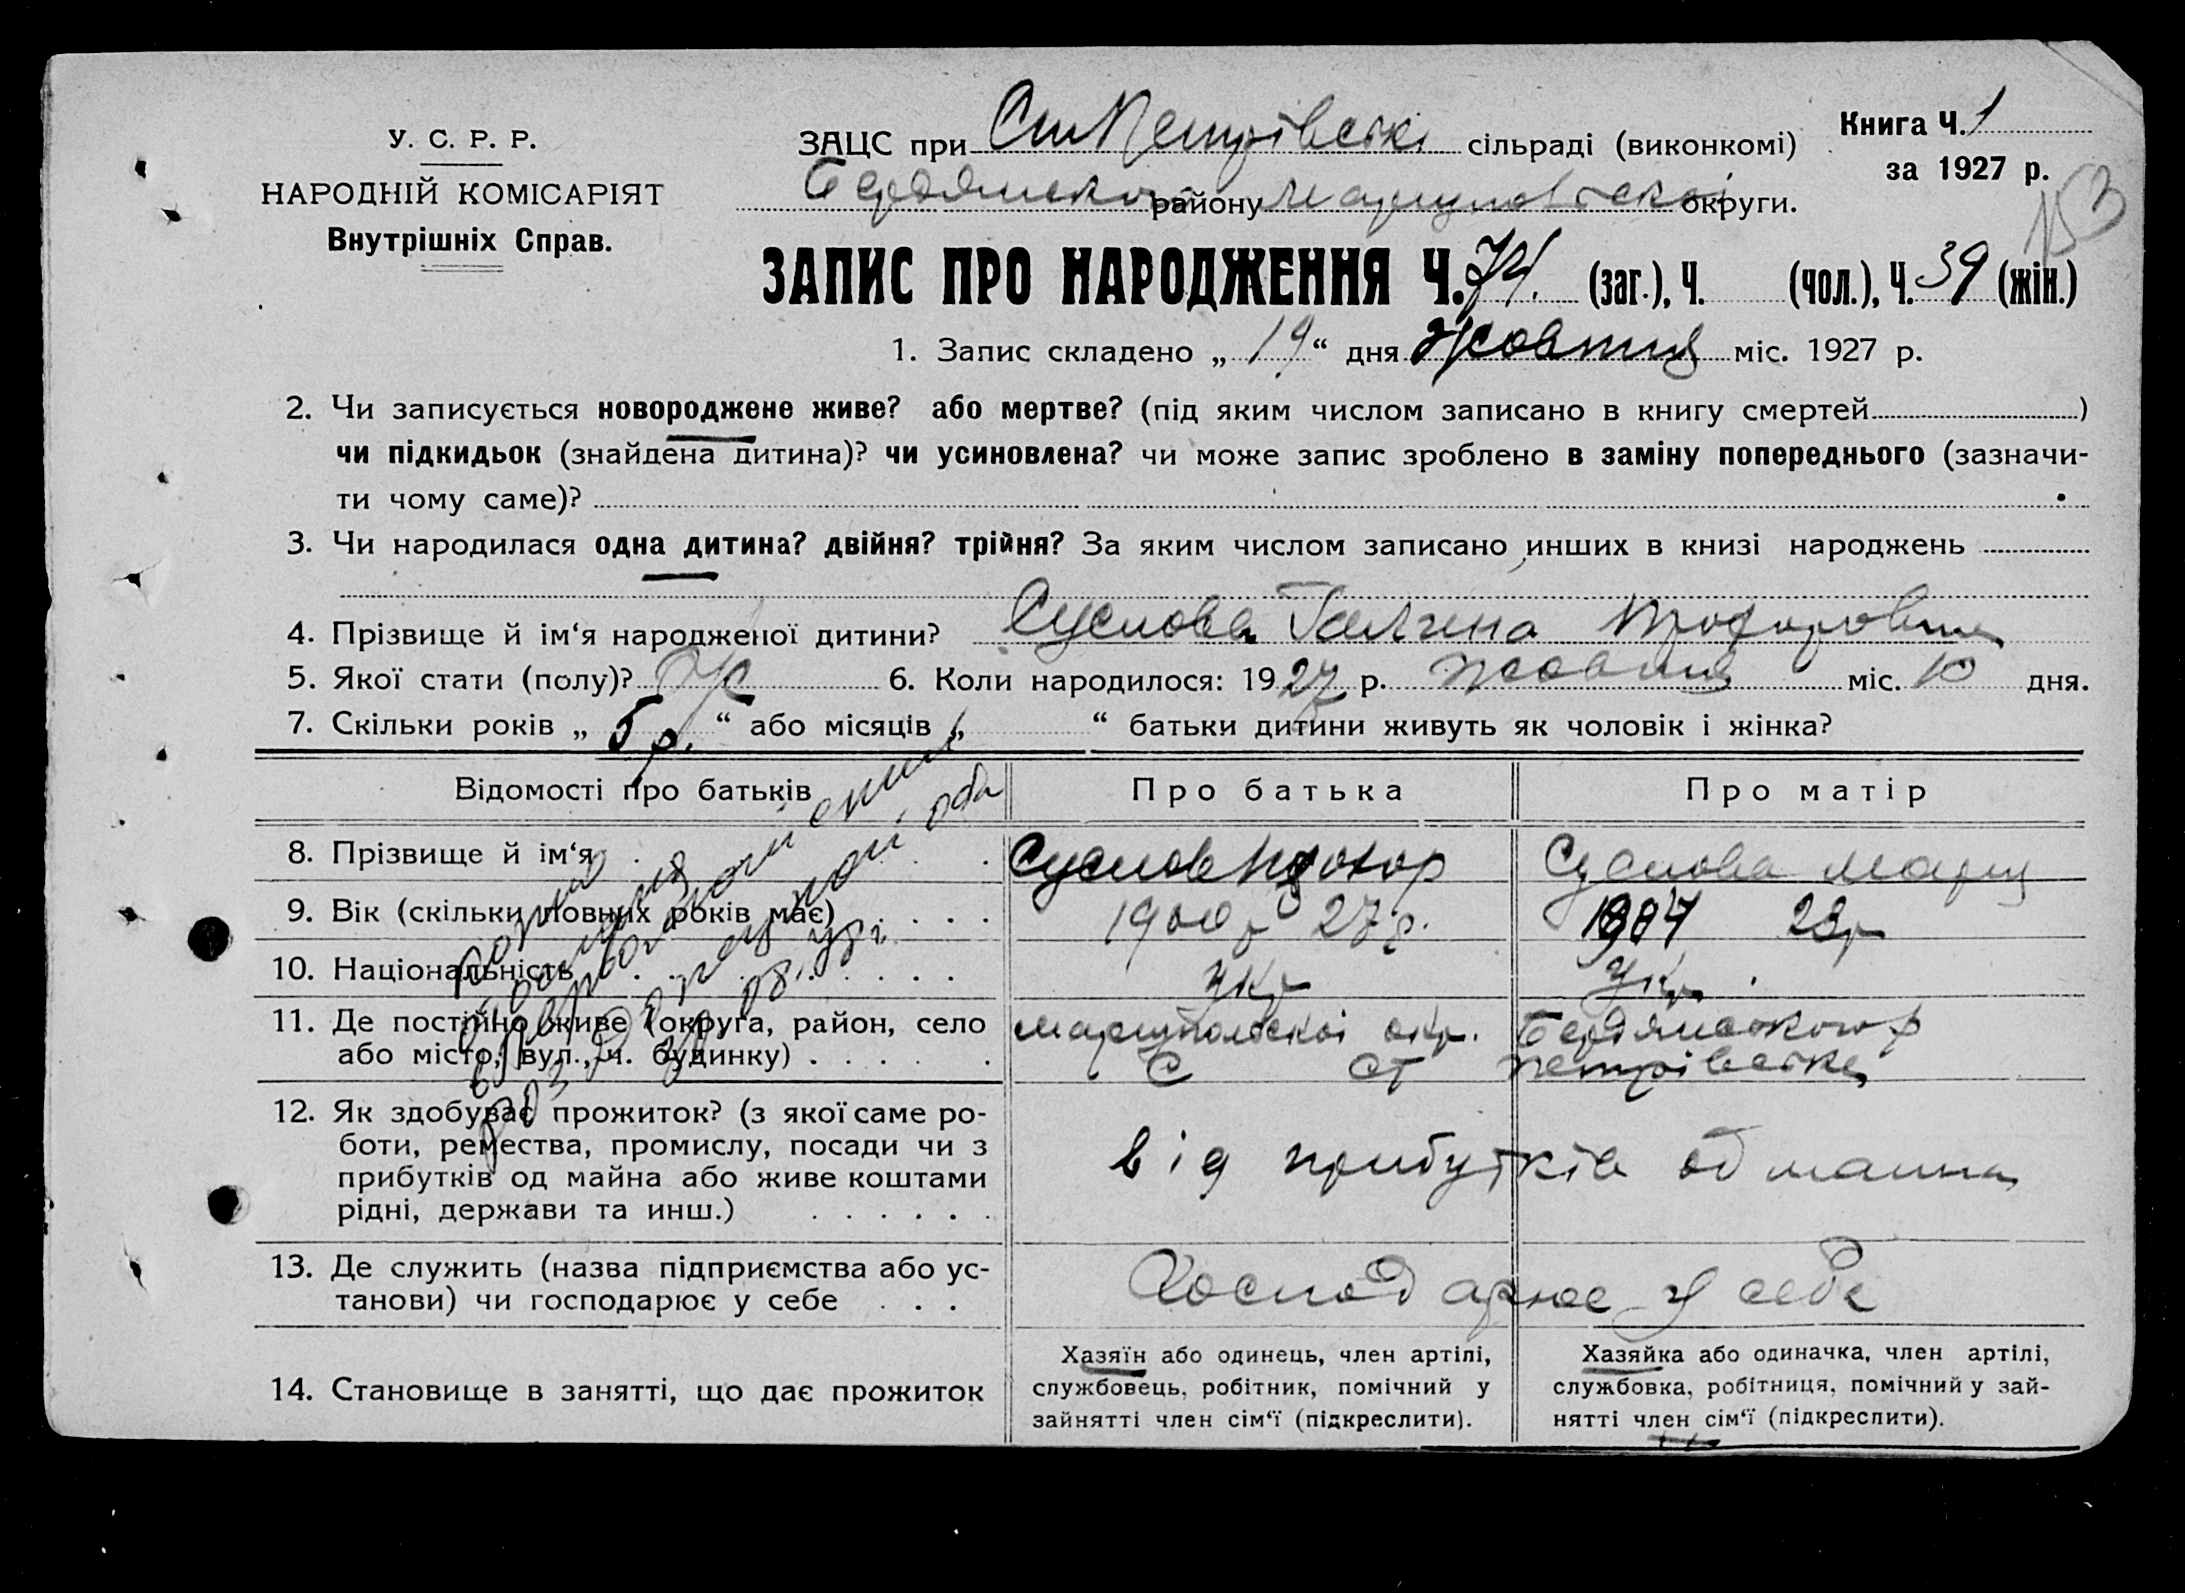 У. С. Р. Р.
НАРОДНІЙ КОМІСАРІЯТ
Внутрішніх Справ.
ЗАЦС при СтПетрівські сільраді (виконкомі)
Бердянського району Маріупольської округи.
Книга Ч. 1
за 1927 р.
153
ЗАПИС ПРО НАРОДЖЕННЯ Ч. 74. (заг.), Ч. (чол.), Ч. 39 (жін.)
1. Запис складено „ 19 “ дня Жовтня міс. 1927 р.
2. Чи записується новороджене живе? або мертве? (під яким числом записано в книгу смертей )
чи підкидьок (знайдена дитина)? чи усиновлена? чи може запис зроблено в заміну попереднього (зазначи-
ти чому саме)?
3. Чи народилася одна дитина? двійня? трійня? За яким числом записано инших в книзі народжень
4. Прізвище й ім‘я народженої дитини? Суслова Галина
5. Якої стати (полу)? ж 6. Коли народилося: 1927 р. жовтня міс. 10 дня.
7. Скільки років „ 5 р. “ або місяців „ “ батьки дитини живуть як чоловік і жінка?
Відомості про батьків Про батька Про матір
8. Прізвище й ім‘я Суслов Прохор Суслова Марія
9. Вік (скільки повних років має) 1900 р 27 р. 23р
10. Національність укр укр.
11. Де постійно живе (округа, район, село Маріупольскоі окр. Бердянського р
або місто, вул., ч. будинку) С ст петрівська
12. Як здобуває прожиток? (з якої саме ро-
боти, ремества, промислу, посади чи з
прибутків од майна або живе коштами
рідні, держави та инш.)
від прибутків од маина
13. Де служить (назва підприємства або ус-
танови) чи господарює у себе
Господарює у себе
14. Становище в занятті, що дає прожиток
Хазяїн або одинець, член артілі,
службовець, робітник, помічний у
зайнятті член сім‘ї (підкреслити).
Хазяйка або одиначка, член артілі,
службовка, робітниця, помічний у зай-
нятті член сім‘ї (підкреслити).